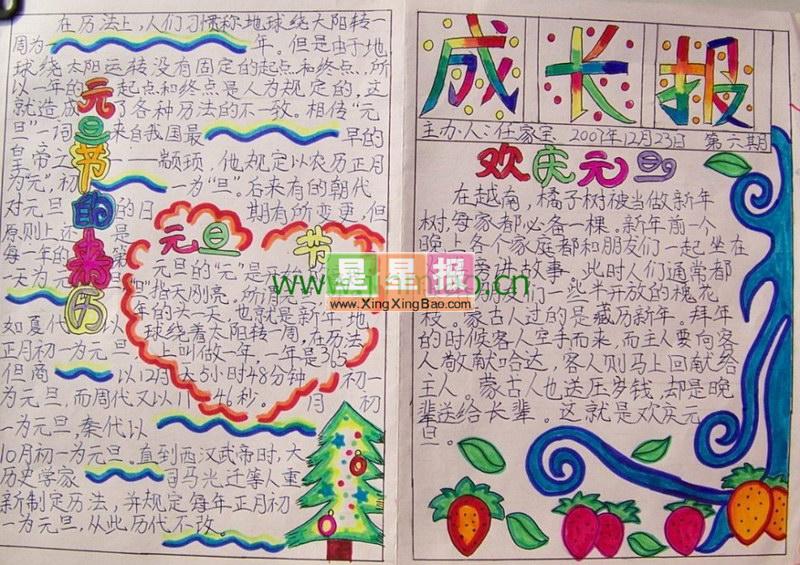 在历法上，人们习惯称地球绕太阳转一
周为 年。但是由于地
球绕太阳运转没有固定的起点和终点，所
以一年的 起点和终点是人为规定的，这
就造成 了各种历法的不一致。相传“元
旦”一词 来自我国最 早的
皇帝 ——颛顼，他规定以农历正月
为“元”，初 一为“旦”。后来有的朝代
对元旦 的日 期有所变更，但
原则上还
每一年的 第
一天为元
如夏代 以
正月初一为元旦
但商 以12月 初一
为元旦，而周代又以11 月 初
一为元旦，秦代以
10月初一为元旦。直到西汉武帝时，大
历史学家 司马光、迁等人重
新制定历法，并规定每年正月初
一为元旦，从此历代不改。
元旦节的来历
元旦 节
元旦的“元”是
“旦”指天刚亮。所谓元
年的第一天，也就是新年，地
球绕着太阳转一周，在历法
上叫做一年，一年是365
天5小时48分钟
46秒。
成长报
主办人：任家宝 2007年12月23日 第六期
欢庆元旦
在越南，橘子树被当做新年
树，每家都必备一棵。新年前一个
晚上，各个家庭都和朋友们一起坐在
旁讲故事，此时人们通常都
们一些半开放的桃花
枝。蒙古人过的是藏历新年。拜年
的时候客人空手而来，而主人要向客
人敬献哈达，客人则马上回献给
主人。蒙古人也送压岁钱，却是晚
辈送给长辈。这就是欢庆元
旦。
星星报
www.XingXingBao.com